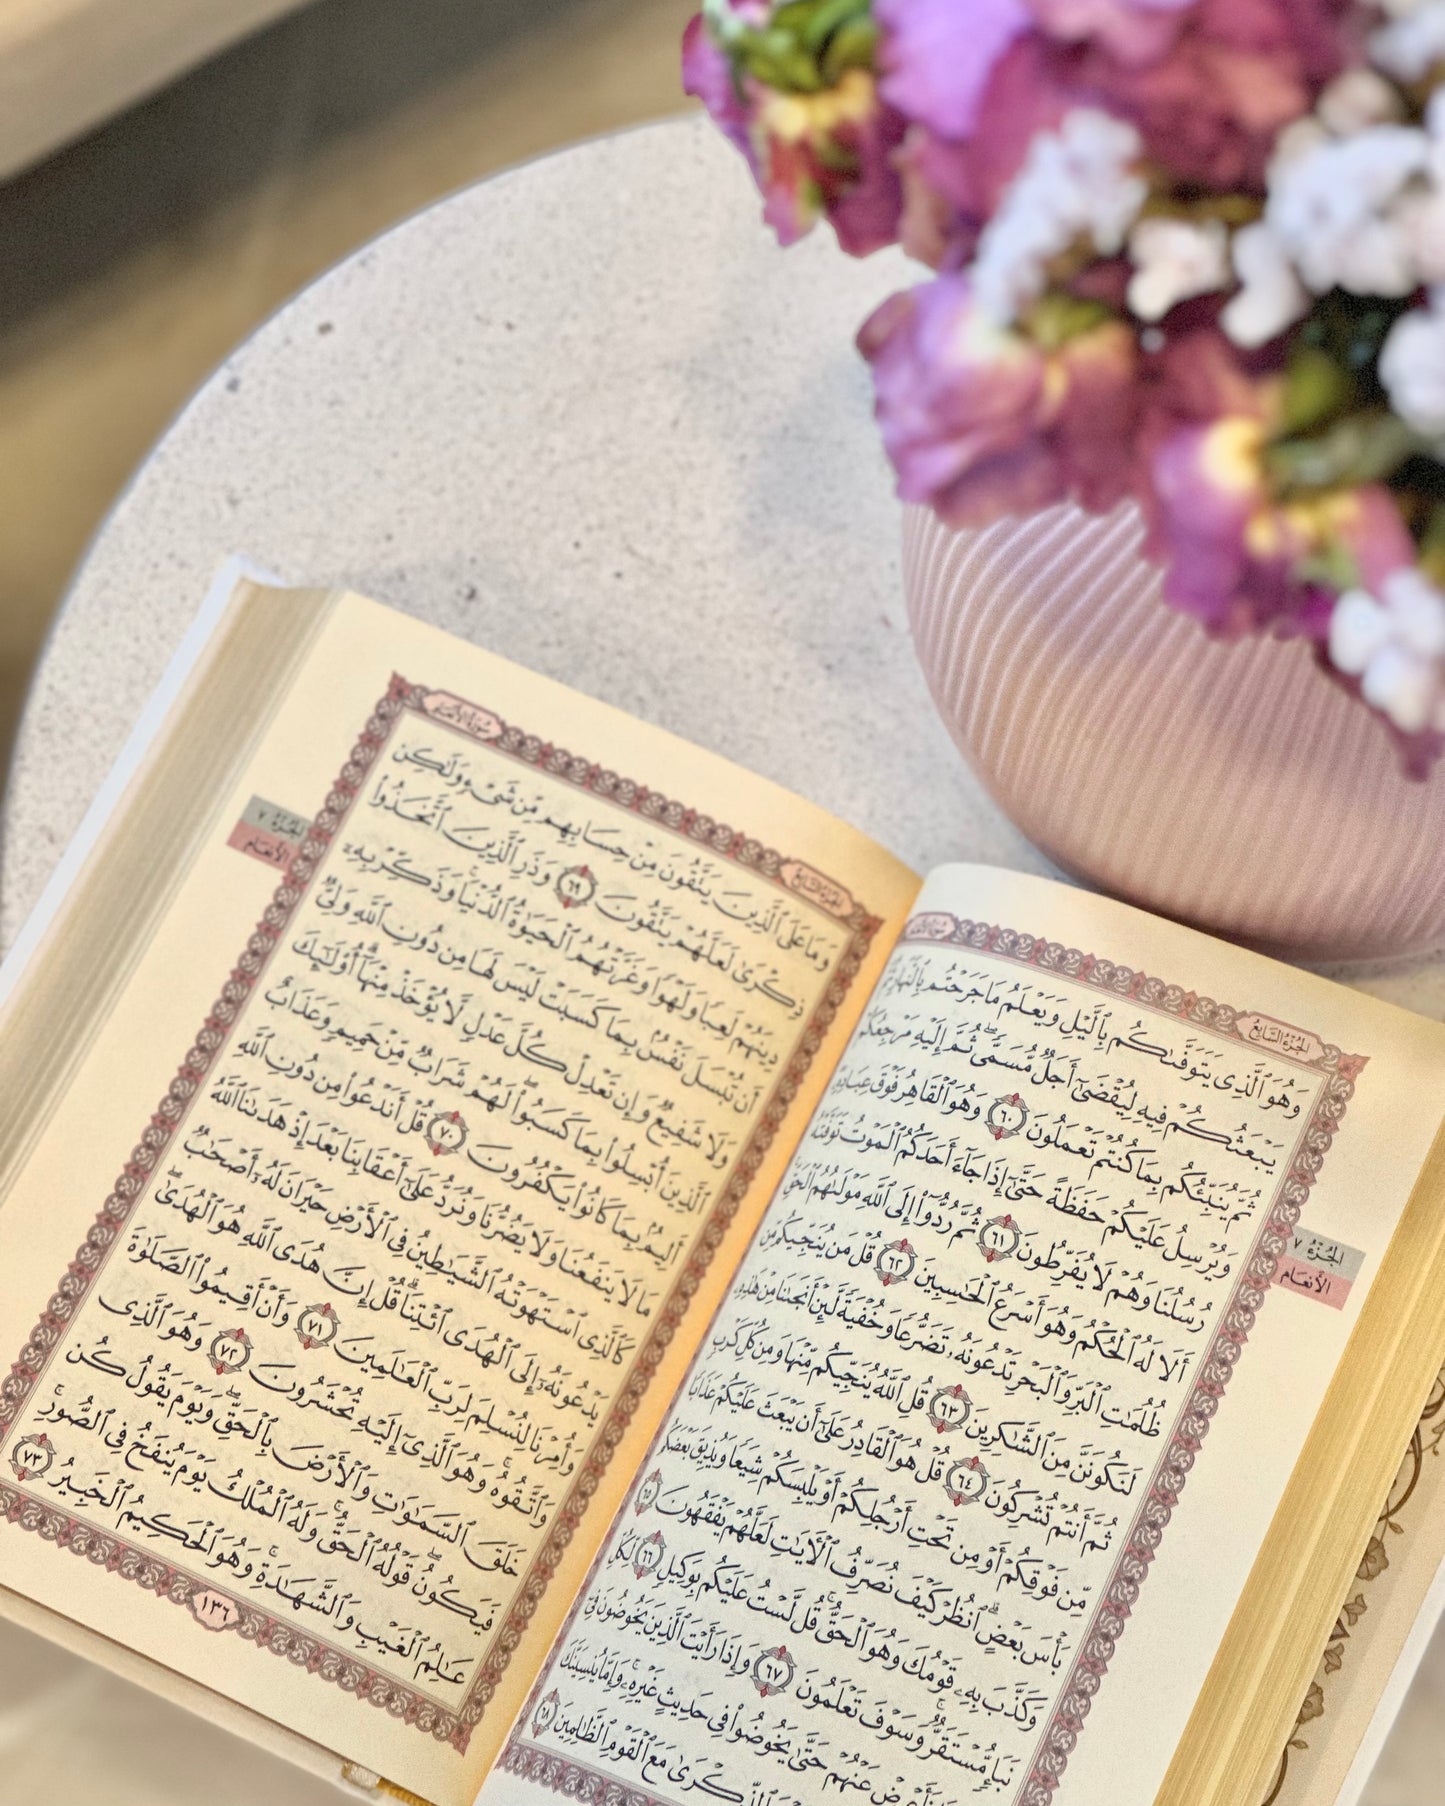 سُورَةُ الأَنْعَامِ
الجُزْءُ السَّابِعُ
وَهُوَ ٱلَّذِى يَتَوَفَّىٰكُم بِٱلَّيْلِ وَيَعْلَمُ مَا جَرَحْتُم بِٱلنَّهَارِ ثُمَّ
يَبْعَثُكُمْ فِيهِ لِيُقْضَىٰٓ أَجَلٌ مُّسَمًّى ۖ ثُمَّ إِلَيْهِ مَرْجِعُكُمْ
ثُمَّ يُنَبِّئُكُم بِمَا كُنتُمْ تَعْمَلُونَ ٦٠ وَهُوَ ٱلْقَاهِرُ فَوْقَ عِبَادِهِۦ
وَيُرْسِلُ عَلَيْكُمْ حَفَظَةً حَتَّىٰٓ إِذَا جَآءَ أَحَدَكُمُ ٱلْمَوْتُ تَوَفَّتْهُ
رُسُلُنَا وَهُمْ لَا يُفَرِّطُونَ ٦١ ثُمَّ رُدُّوٓا۟ إِلَى ٱللَّهِ مَوْلَىٰهُمُ ٱلْحَقِّ
أَلَا لَهُ ٱلْحُكْمُ وَهُوَ أَسْرَعُ ٱلْحَٰسِبِينَ ٦٢ قُلْ مَن يُنَجِّيكُم مِّن
ظُلُمَٰتِ ٱلْبَرِّ وَٱلْبَحْرِ تَدْعُونَهُۥ تَضَرُّعًا وَخُفْيَةً لَّئِنْ أَنجَىٰنَا مِنْ هَٰذِهِۦ
لَنَكُونَنَّ مِنَ ٱلشَّٰكِرِينَ ٦٣ قُلِ ٱللَّهُ يُنَجِّيكُم مِّنْهَا وَمِن كُلِّ كَرْبٍ
ثُمَّ أَنتُمْ تُشْرِكُونَ ٦٤ قُلْ هُوَ ٱلْقَادِرُ عَلَىٰٓ أَن يَبْعَثَ عَلَيْكُمْ عَذَابًا
مِّن فَوْقِكُمْ أَوْ مِن تَحْتِ أَرْجُلِكُمْ أَوْ يَلْبِسَكُمْ شِيَعًا وَيُذِيقَ بَعْضَكُم
بَأْسَ بَعْضٍ ۗ ٱنظُرْ كَيْفَ نُصَرِّفُ ٱلْءَايَٰتِ لَعَلَّهُمْ يَفْقَهُونَ ٦٥
وَكَذَّبَ بِهِۦ قَوْمُكَ وَهُوَ ٱلْحَقُّ ۚ قُل لَّسْتُ عَلَيْكُم بِوَكِيلٍ ٦٦ لِّكُلِّ
نَبَإٍ مُّسْتَقَرٌّ ۚ وَسَوْفَ تَعْلَمُونَ ٦٧ وَإِذَا رَأَيْتَ ٱلَّذِينَ يَخُوضُونَ فِىٓ
عَنْهُمْ حَتَّىٰ يَخُوضُوا۟ فِى حَدِيثٍ غَيْرِهِۦ ۚ وَإِمَّا يُنسِيَنَّكَ
ٱلذِّكْرَىٰ مَعَ ٱلْقَوْمِ ٱلظَّٰلِمِينَ ٦٨
الجُزْءُ ٧
الأَنْعَام
الجُزْءُ السَّابِعُ
سُورَةُ الأَنْعَامِ
وَمَا عَلَى ٱلَّذِينَ يَتَّقُونَ مِنْ حِسَابِهِم مِّن شَىْءٍ وَلَٰكِن
ذِكْرَىٰ لَعَلَّهُمْ يَتَّقُونَ ٦٩ وَذَرِ ٱلَّذِينَ ٱتَّخَذُوا۟
دِينَهُمْ لَعِبًا وَلَهْوًا وَغَرَّتْهُمُ ٱلْحَيَوٰةُ ٱلدُّنْيَا ۚ وَذَكِّرْ بِهِۦٓ
أَن تُبْسَلَ نَفْسٌۢ بِمَا كَسَبَتْ لَيْسَ لَهَا مِن دُونِ ٱللَّهِ وَلِىٌّ
وَلَا شَفِيعٌ وَإِن تَعْدِلْ كُلَّ عَدْلٍ لَّا يُؤْخَذْ مِنْهَآ ۗ أُو۟لَٰٓئِكَ
ٱلَّذِينَ أُبْسِلُوا۟ بِمَا كَسَبُوا۟ ۖ لَهُمْ شَرَابٌ مِّنْ حَمِيمٍ وَعَذَابٌ
أَلِيمٌۢ بِمَا كَانُوا۟ يَكْفُرُونَ ٧٠ قُلْ أَنَدْعُوا۟ مِن دُونِ ٱللَّهِ
مَا لَا يَنفَعُنَا وَلَا يَضُرُّنَا وَنُرَدُّ عَلَىٰٓ أَعْقَابِنَا بَعْدَ إِذْ هَدَىٰنَا ٱللَّهُ
كَٱلَّذِى ٱسْتَهْوَتْهُ ٱلشَّيَٰطِينُ فِى ٱلْأَرْضِ حَيْرَانَ لَهُۥٓ أَصْحَٰبٌ
يَدْعُونَهُۥٓ إِلَى ٱلْهُدَى ٱئْتِنَا ۗ قُلْ إِنَّ هُدَى ٱللَّهِ هُوَ ٱلْهُدَىٰ ۖ
وَأُمِرْنَا لِنُسْلِمَ لِرَبِّ ٱلْعَٰلَمِينَ ٧١ وَأَنْ أَقِيمُوا۟ ٱلصَّلَوٰةَ
وَٱتَّقُوهُ ۚ وَهُوَ ٱلَّذِىٓ إِلَيْهِ تُحْشَرُونَ ٧٢ وَهُوَ ٱلَّذِى
خَلَقَ ٱلسَّمَٰوَٰتِ وَٱلْأَرْضَ بِٱلْحَقِّ ۖ وَيَوْمَ يَقُولُ كُن
فَيَكُونُ ۚ قَوْلُهُ ٱلْحَقُّ ۚ وَلَهُ ٱلْمُلْكُ يَوْمَ يُنفَخُ فِى ٱلصُّورِ ۚ
عَٰلِمُ ٱلْغَيْبِ وَٱلشَّهَٰدَةِ ۚ وَهُوَ ٱلْحَكِيمُ ٱلْخَبِيرُ ٧٣
الجُزْءُ ٧
الأَنْعَام
١٣٦